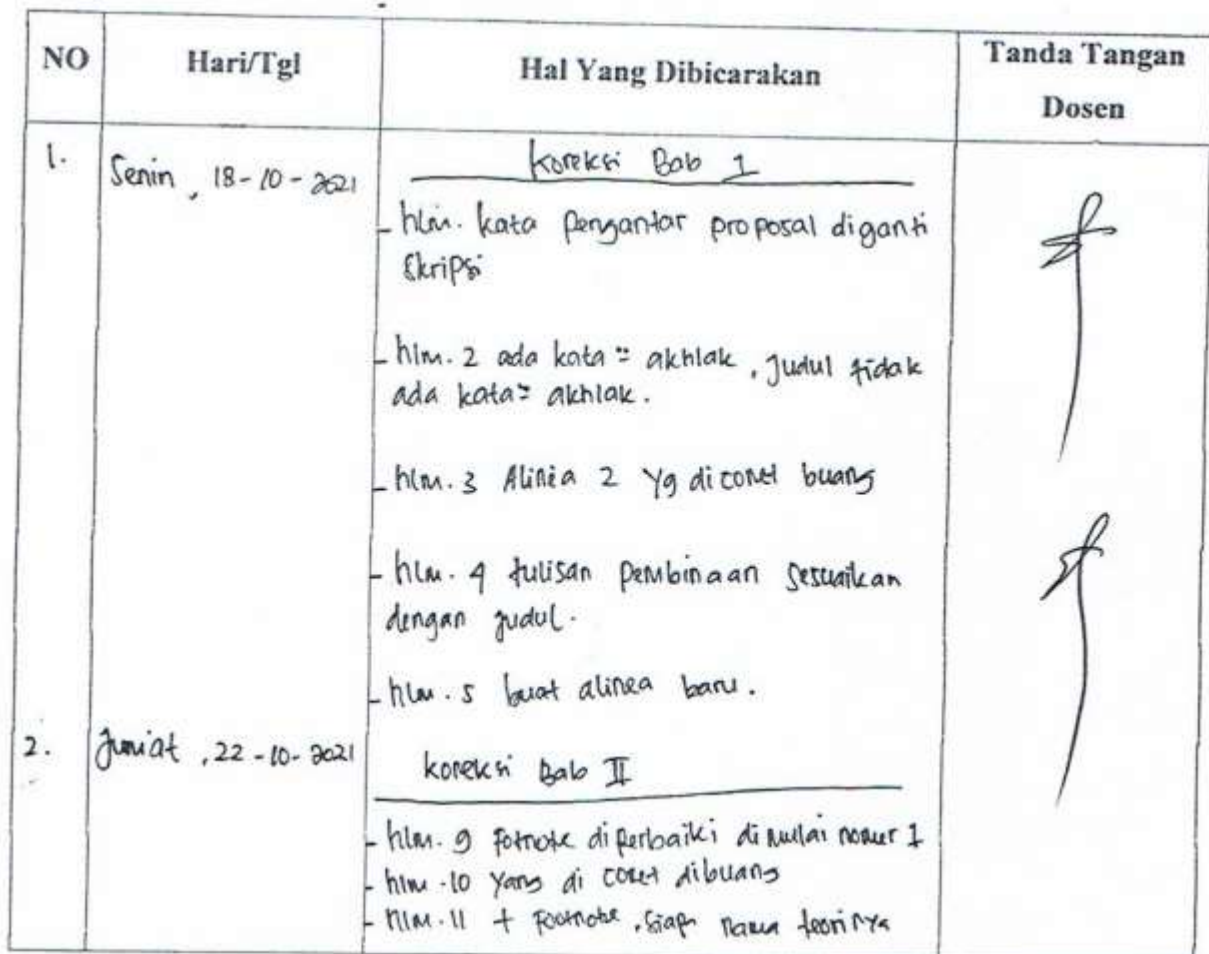 NO Hari/Tgl Hal Yang Dibicarakan Tanda Tangan
Dosen
1. Senin, 18-10-2021 Koreksi Bab 1
- hlm. kata pengantar proposal diganti
Skripsi
- hlm. 2 ada kata= akhlak, Judul tidak
ada kata= akhlak.
- hlm. 3 Alinea 2 yg dicoret buang
- hlm. 4 tulisan pembinaan sesuaikan
dengan judul.
- hlm. 5 buat alinea baru.
2. Jumiat, 22-10-2021 koreksi Bab II
- hlm. 9 Footnote diperbaiki dimulai nomer 1
- hlm. 10 yang di coret dibuang
- hlm. 11 + Footnote, Siapa nama teorinya